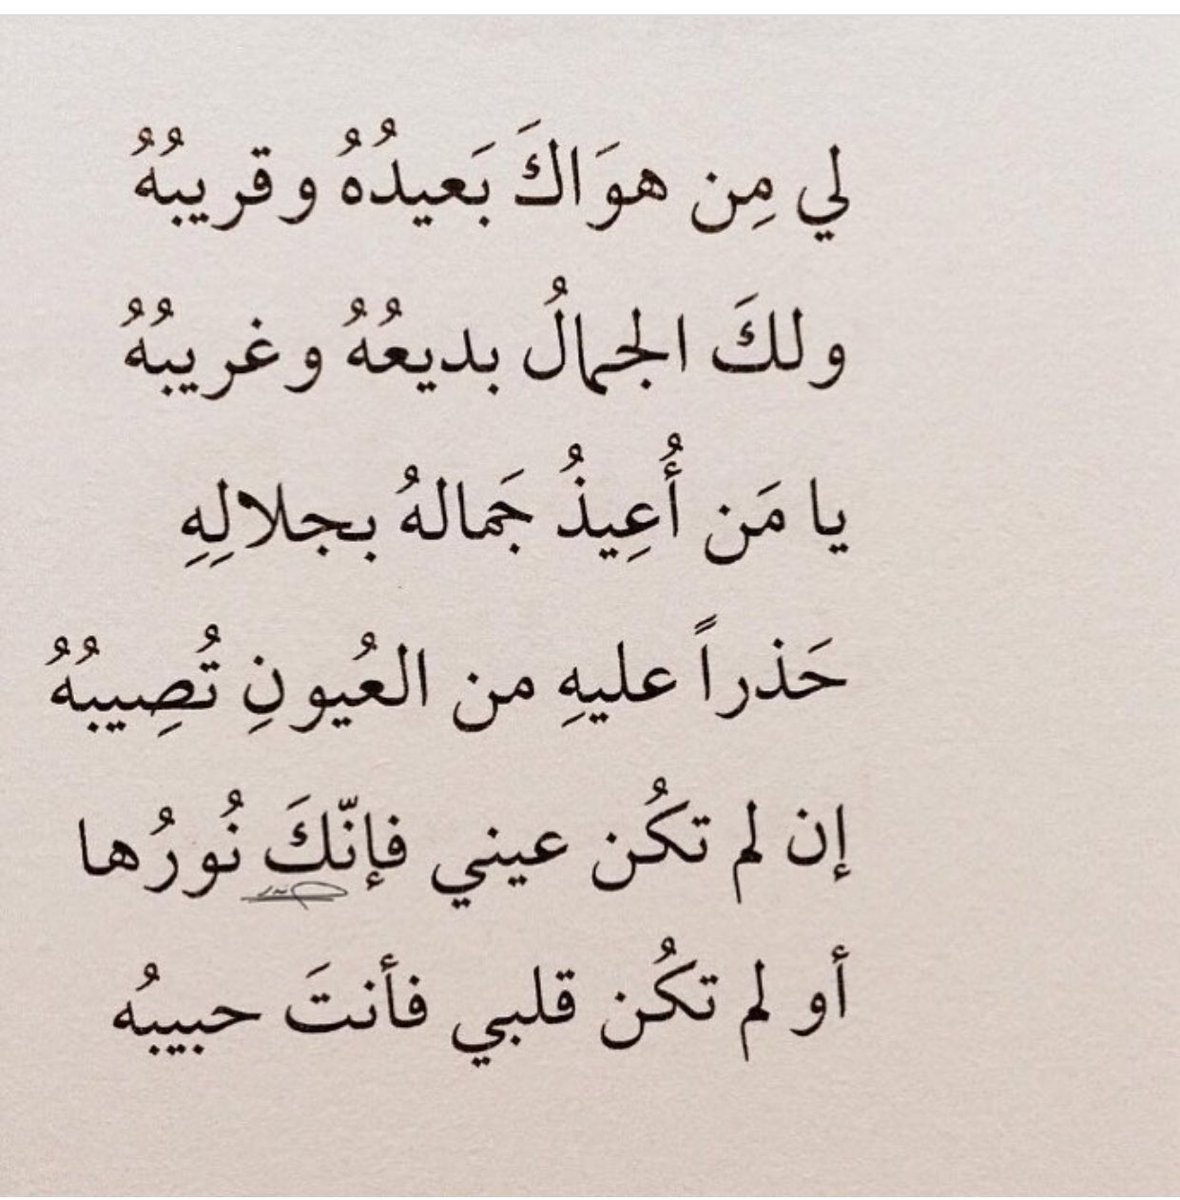 لي مِن هوَاكَ بَعيدُهُ وقريبُهُ
ولكَ الجمالُ بديعُهُ وغريبُهُ
يا مَن أُعِيذُ جَمالهُ بجلالِهِ
حَذراً عليهِ من العُيونِ تُصِيبُهُ
إن لم تكُن عيني فإنّكَ نُورُها
أو لم تكُن قلبي فأنتَ حبيبُه